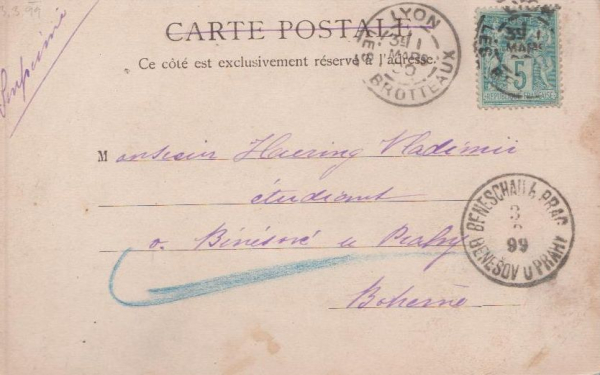 3.3.99
Imprimé
CARTE POSTALE
Ce côté est exclusivement réservé à l'adresse.
LYON
LES BROTTEAUX
MARS
5
Monsieur Haering Vladimir
étudiant
v. Bénésové u Prahy
Bohême
BENESCHAU b. PRAG
3
99
BENEŠOV U PRAHY